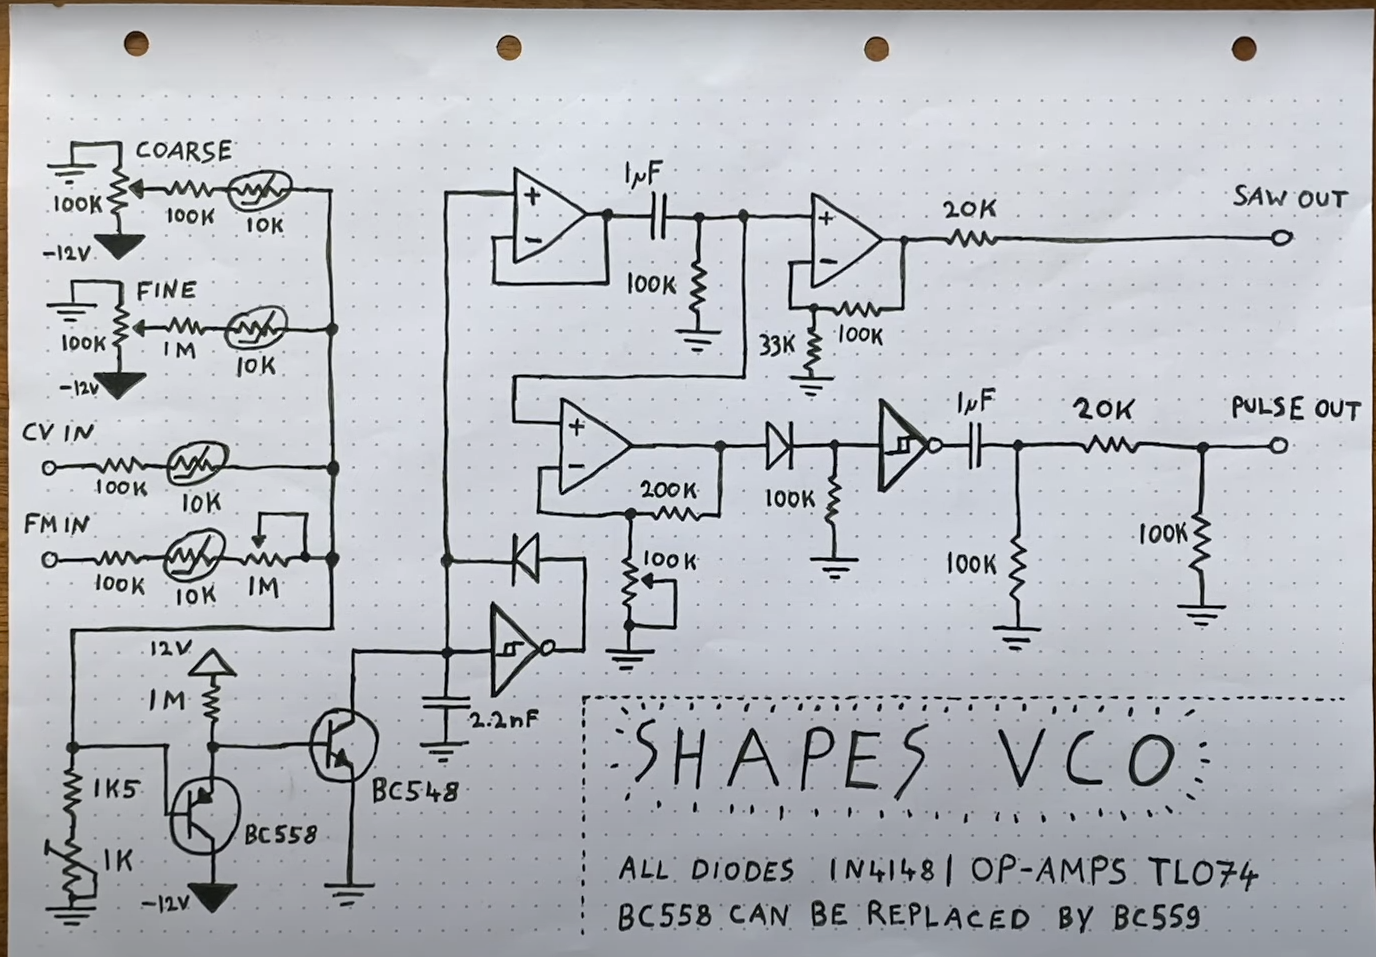 COARSE
100K
100K
10K
-12V
FINE
100K
1M
10K
-12V
CV IN
100K
10K
FM IN
100K
10K
1M
12V
1M
1K5
1K
BC558
-12V
BC548
2.2nF
+
-
1µF
100K
+
-
100K
33K
20K
SAW OUT
+
-
200K
100K
100K
1µF
100K
20K
100K
PULSE OUT
SHAPES VCO
ALL DIODES 1N4148 | OP-AMPS TL074
BC558 CAN BE REPLACED BY BC559